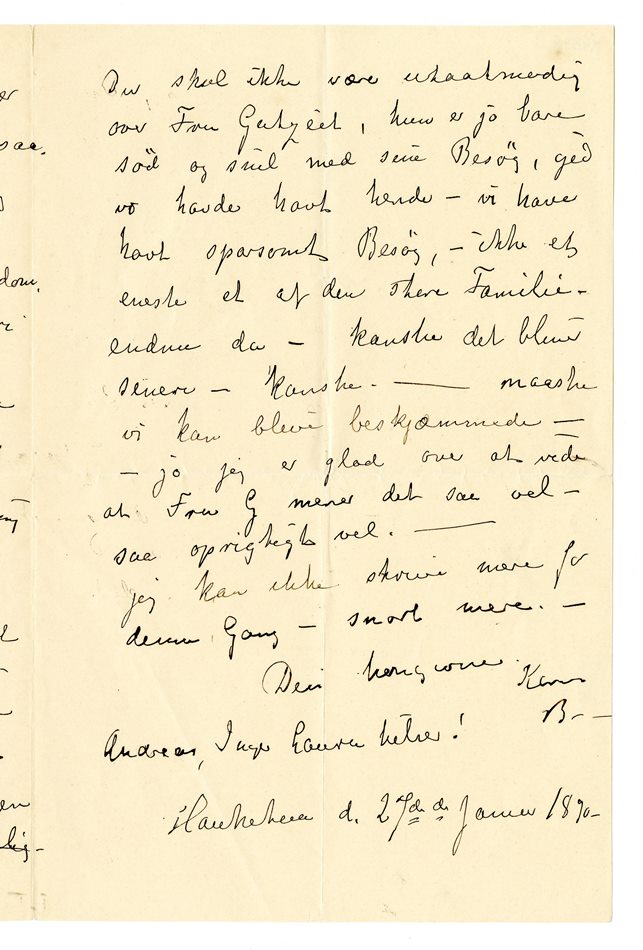 er
saa.
dom,
Du skal ikke være utaalmodig
over Fru Gatzéit, hun er jo bare
söd og snil med sine Besög, gid
vo havde havt hende – vi have
havt sparsomt Besög, – ikke et
eneste et af den store Familie –
endnu da – kanske det bliver
senere – kanske. — maaske
vi kan blive beskjæmmede –
– jo jeg er glad over at vide
at Fru G mener det saa vel –
saa oprigtigt vel. —
jeg kan ikke skrive mere for
denne Gang – snart mere. –
Din hengivne
Karen
B. –
Andreas, Inga Laura hilser!
d. 27de de Januar 1890 –
en
lig –